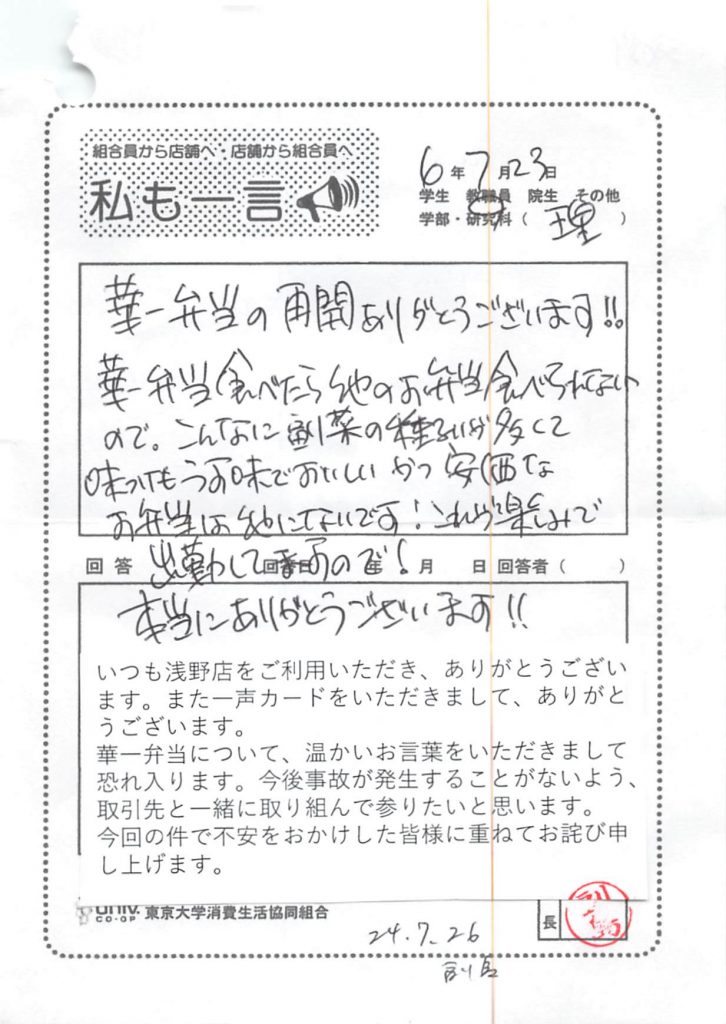 組合員から店舗へ・店舗から組合員へ
私も一言
6年7月23日
学生 教職員 院生 その他
学部・研究科（ 理 ）
華一弁当の再開ありがとうございます!!
華一弁当食べたら他のお弁当食べられない
ので。こんなに副菜の種類が多くて
味つけもうす味でおいしいかつ安価な
お弁当は他にないです！これが楽しみで
出勤してますので！
回答 回答日 年 月 日 回答者（ ）
本当にありがとうございます!!
いつも浅野店をご利用いただき、ありがとうござい
ます。また一声カードをいただきまして、ありがと
うございます。
華一弁当について、温かいお言葉をいただきまして
恐れ入ります。今後事故が発生することがないよう、
取引先と一緒に取り組んで参りたいと思います。
今回の件で不安をおかけした皆様に重ねてお詫び申
し上げます。
univ. CO-OP 東京大学消費生活協同組合
長
24.7.26